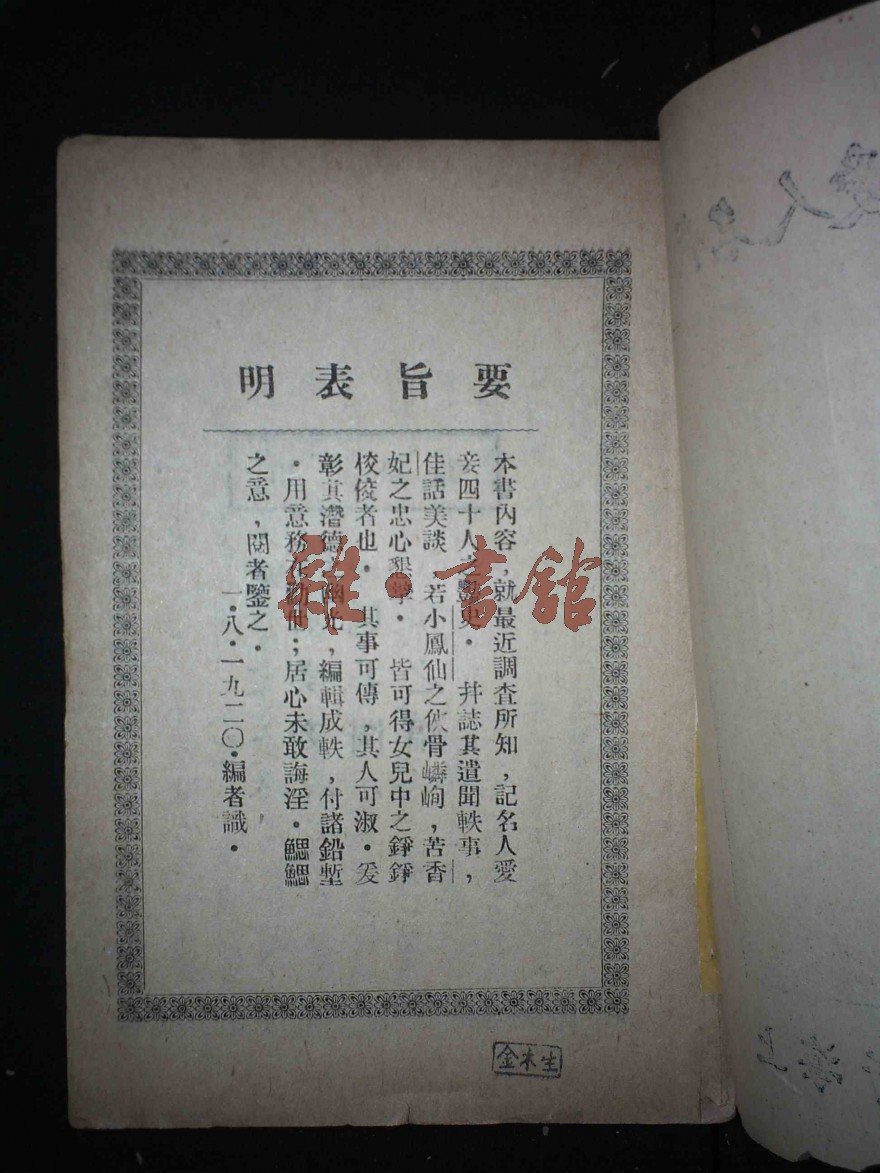 要旨表明
本書內容,就最近調查所知,記名人愛
妾四十人之艷史。幷誌其遺聞軼事,
佳話美談,若小鳳仙之俠骨嶙峋,苦香
妃之忠心懇摯。皆可得女兒中之錚錚
校佼者也。其事可傳,其人可淑。爰
彰其潛德幽光,編輯成軼,付諸鉛槧
。用意務在勸懲;居心未敢誨淫。鰓鰓
之意,閱者鑒之。
一.八.一九二〇.編者識.
雜·書館
金木生